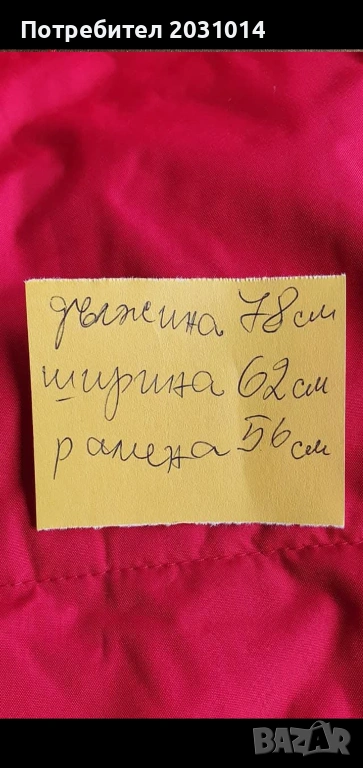 Потребител 2031014
дължина 78 см
ширина 62 см
рамена 56 см
BAZAR